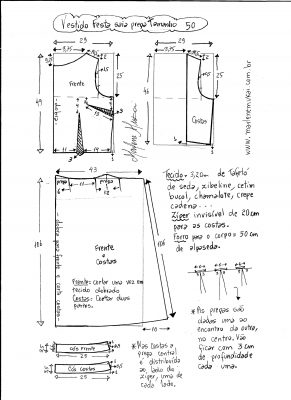 Vestido Festa saia prega Tamanho 50
29
29
Frente
Costas
25
25
49
46
www.marlenemukai.com.br
43
prega
prega
Tecido: 3,20m de Tafetá
de seda, xibeline, cetim
bucol, chamalote, crepe
cadena...
Zíper invisível de 20cm
para as costas.
Forro para o corpo: 50cm
de alpaseda.
106
106
Frente
e
Costas
Frente: cortar uma vez no
tecido dobrado
Costas: Cortar duas
partes.
10
* As pregas são
dadas uma ao
encontro da outra,
no centro. Vão
ficar com 3cm
de profundidade
cada uma.
cós Frente
25
Cós costas
25
* Nas costas a
prega central
é distribuída
ao lado do
zíper, uma de
cada lado.